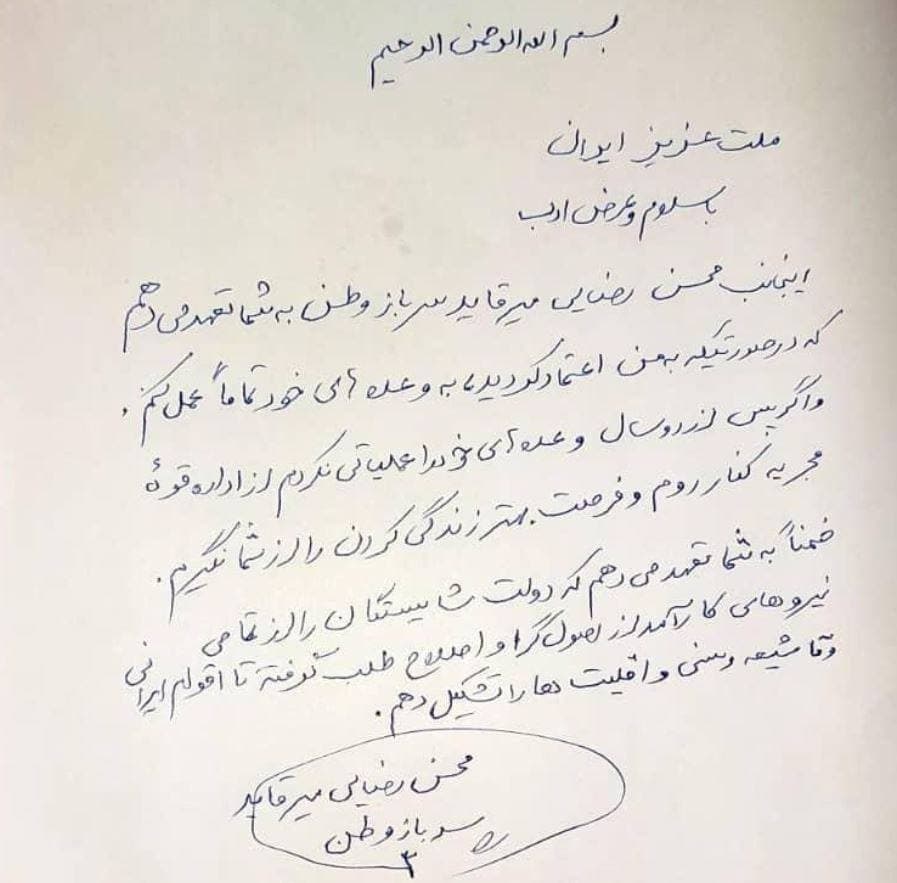 بسم الله الرحمن الرحیم
ملت عزیز ایران
باسلام و عرض ادب
اینجانب محسن رضایی میرقاید سرباز وطن به شما تعهد می دهم
که در صورتیکه به من اعتماد کردید، به وعده های خود تماماً عمل کنم.
واگر پس از دو سال وعده های خود را عملیاتی نکردم از اداره قوهٔ
مجریه کنار روم و فرصت بهتر زندگی کردن را از شما نگیرم.
ضمناً به شما تعهد می دهم که دولت شایستگان را از تمامی
نیروهای کارآمد از اصول گرا و اصلاح طلب گرفته تا اقوام ایرانی
و تا شیعه و سنی و اقلیت ها را تشکیل دهم.
محسن رضایی میرقاید
سرباز وطن
۳